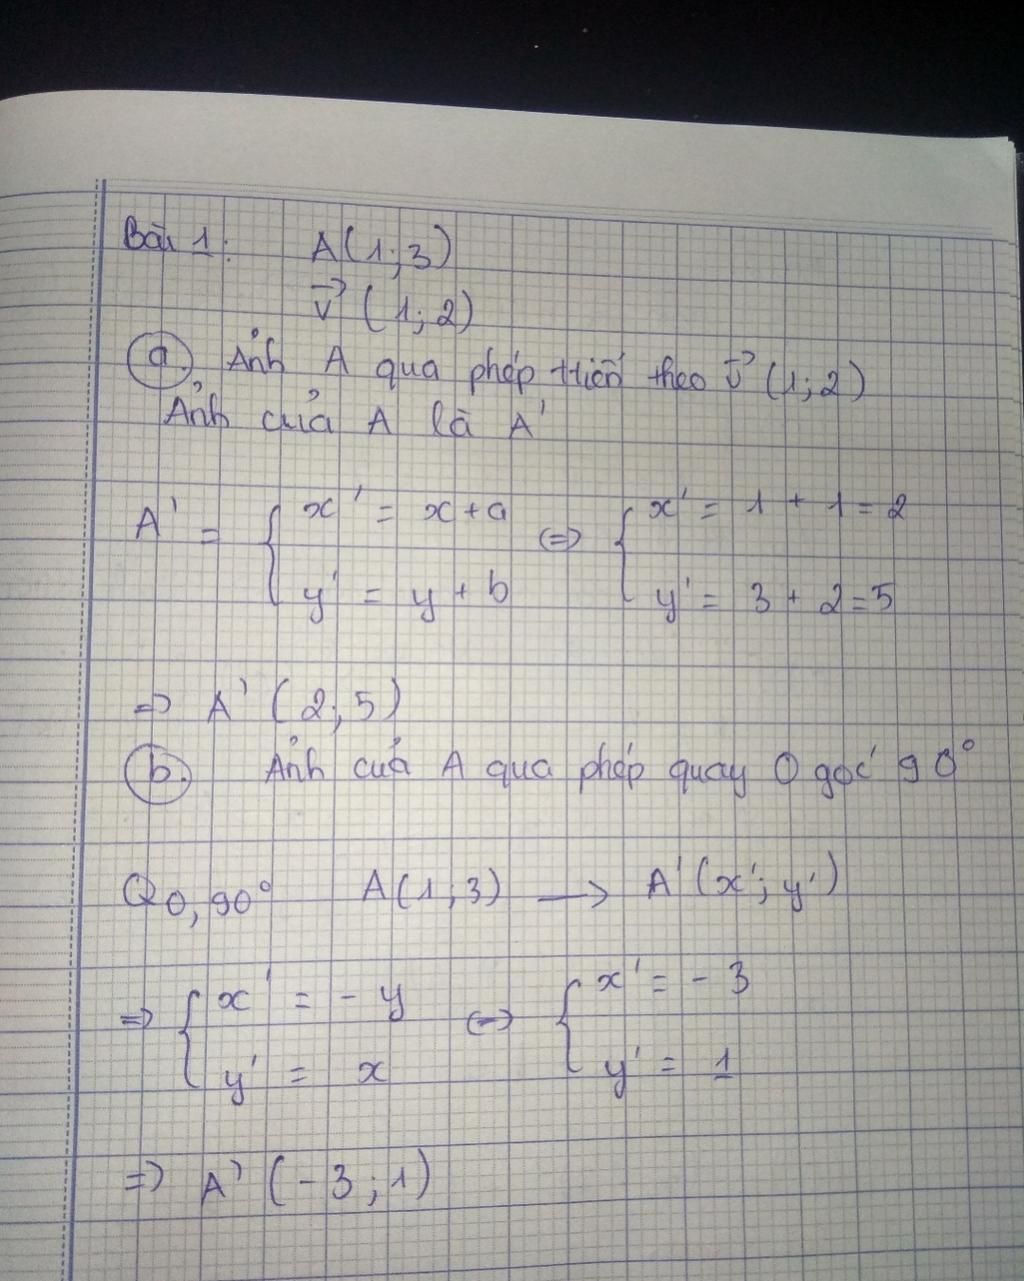 Bài 1: A(1;3)
v⃗ (1;2)
a. Ảnh A qua phép tiến theo v⃗ (1;2)
Ảnh của A là A'
A' = { x' = x+a ⇔ { x' = 1 + 1 = 2
y' = y + b y' = 3 + 2 = 5
=> A' (2;5)
b. Ảnh của A qua phép quay O góc 90°
Q O, 90° A(1;3) → A'(x'; y')
=> { x' = - y ⇔ { x' = - 3
y' = x y' = 1
=> A' (-3;1)